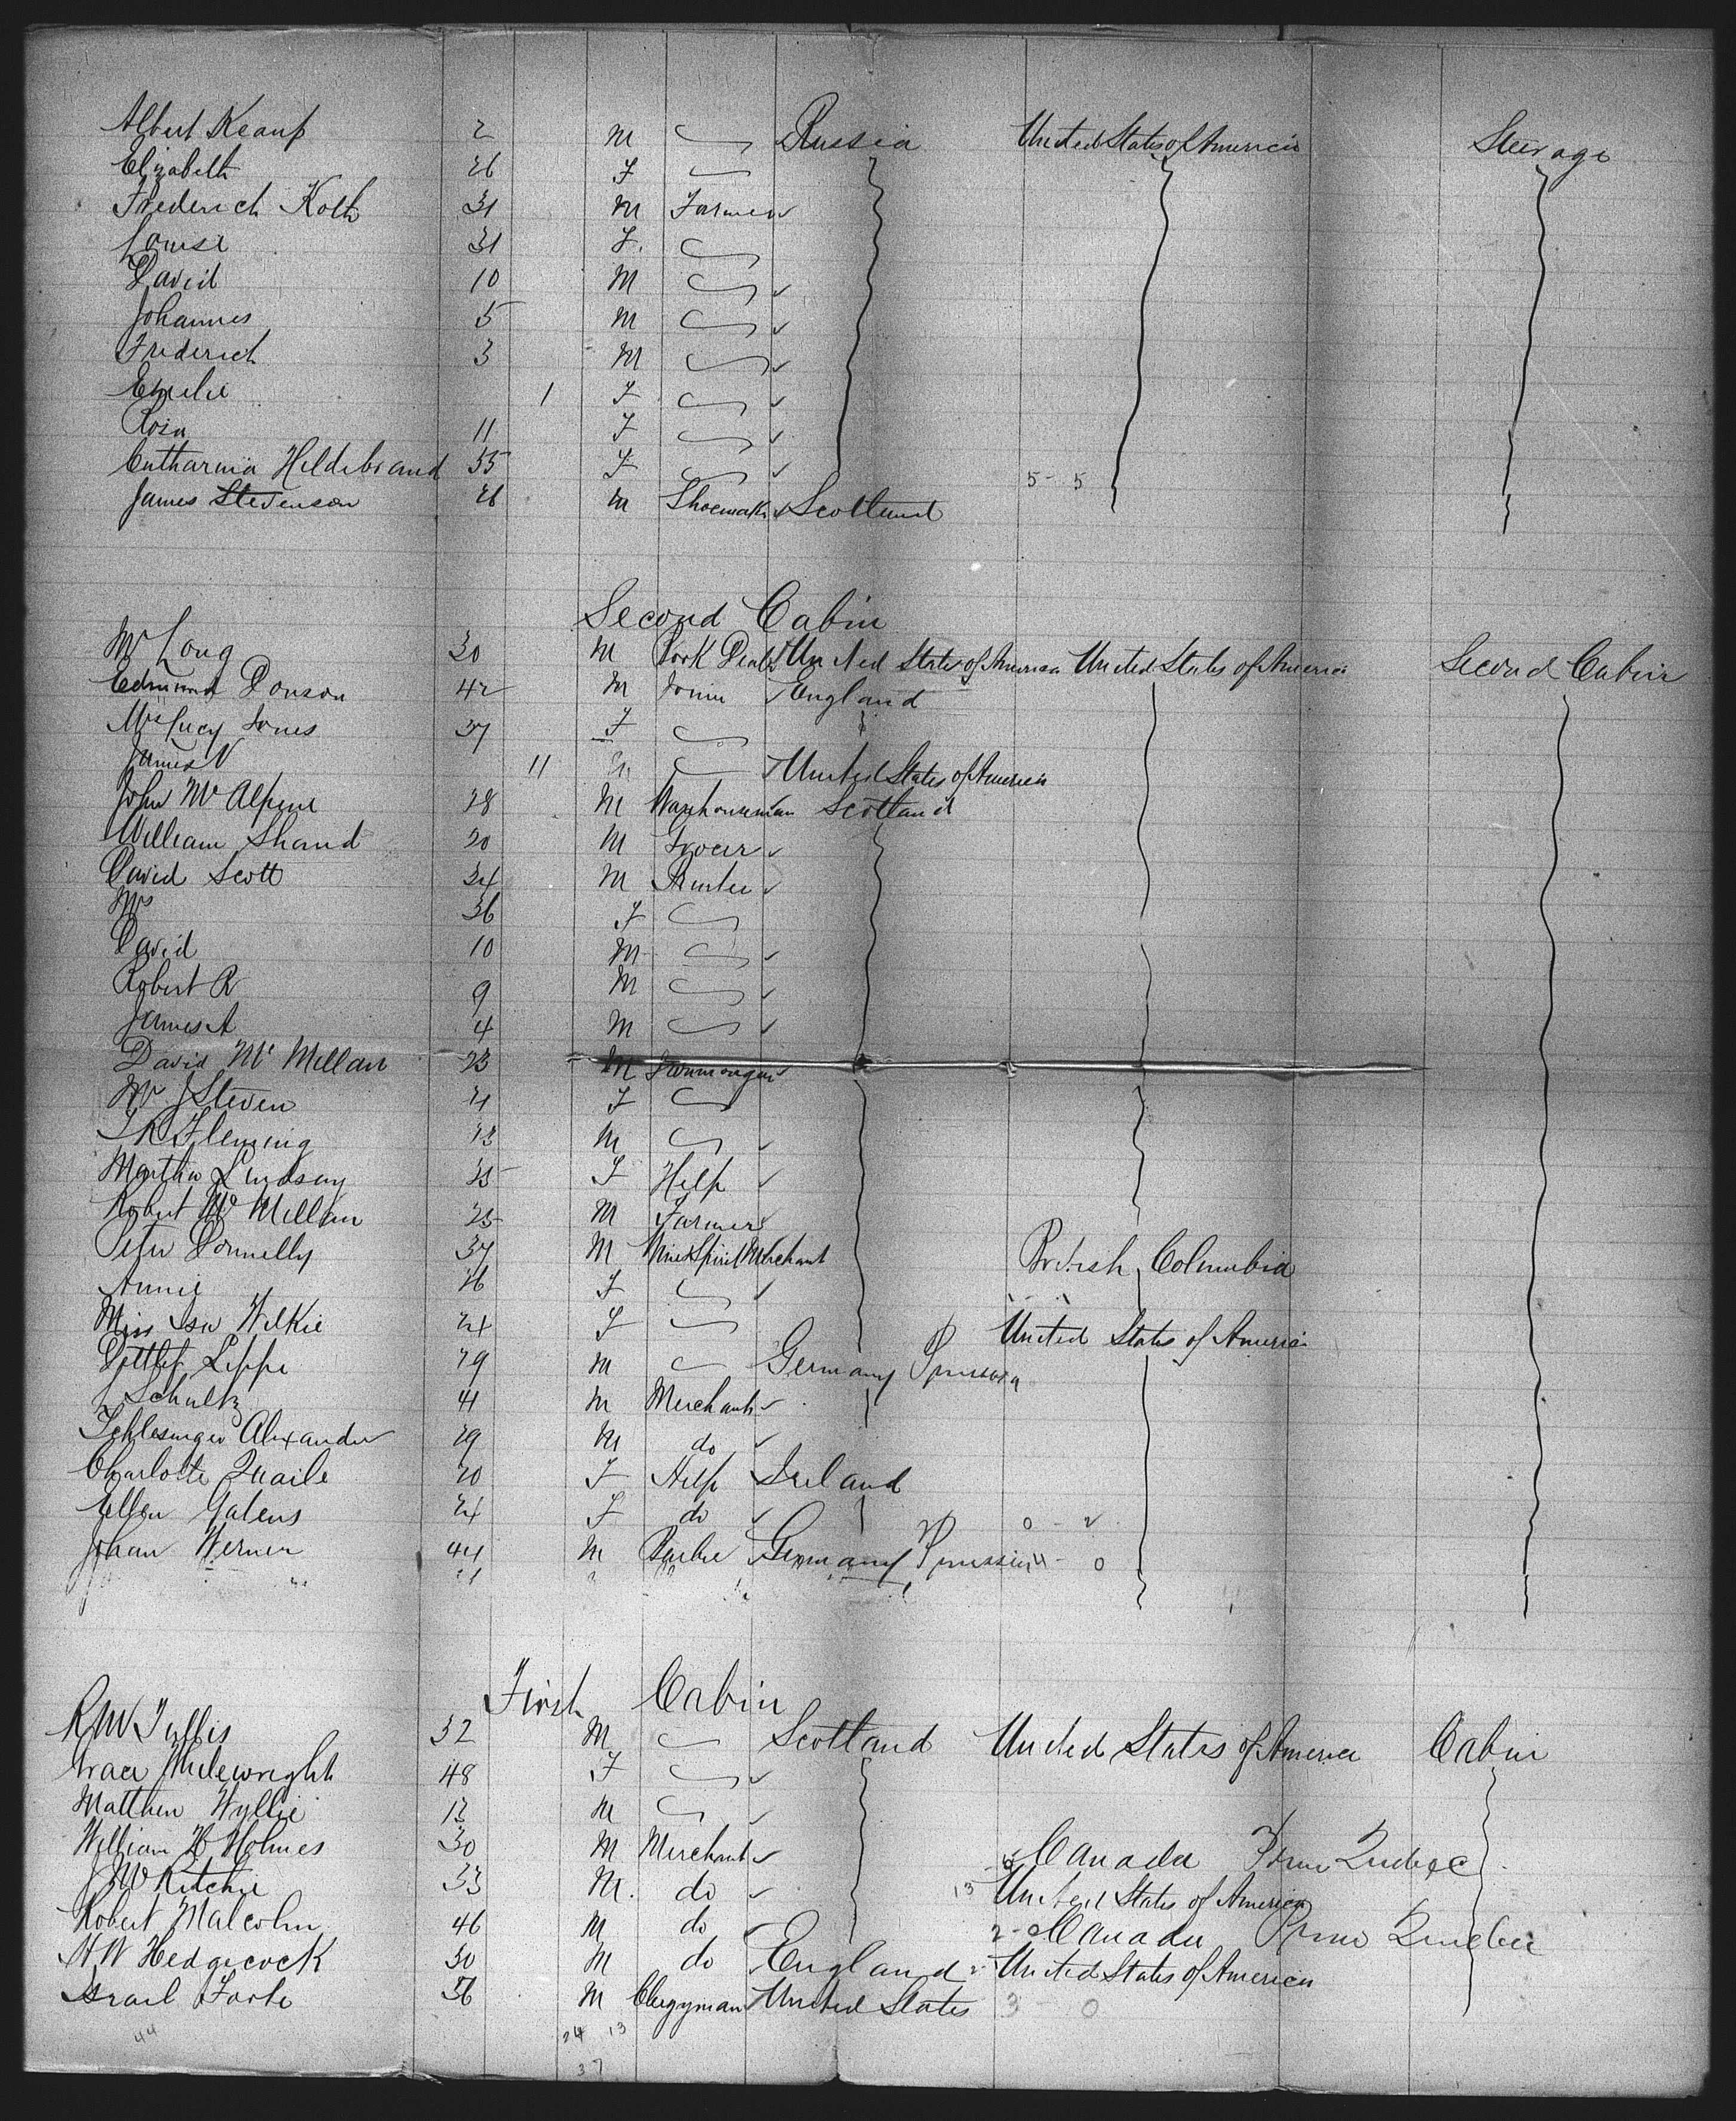 Albert 2 M Russia United States of America Steerage
Elizabeth 26 F
Frederich Kolb 31 M Farmer
Louise 31 F.
David 10 M
Johannes 5 M
Frederich 3 M
Emelie 1 F
Rosa 11 F
Catharina Hildebrand 55 F 5 - 5
James Stevenson 26 M Shoemaker Scotland
Second Cabin
Mr Long 30 M Pork Dealer United States of America United States of America Second Cabin
Edmund Donson 42 M Joiner England
Mrs Lucy Jones 37 F
James V 11 M United States of America
John McAlpine 28 M Warehouseman Scotland
William Shand 20 M Grocer
David Scott 34 M Printer
Mrs 36 F
David 10 M
Robert R 9 M
James A 4 M
David McMillan 23 M Ironmonger
J Steven F
J R Fleming 13 M
Martha Lindsay 35 F Help
Robert McMillan 25 M Farmer
Peter Donnelly 37 M Wine & Spirit Merchant British Columbia
Annie 26 F
Miss Isa Wilkie 24 F United States of America
Dittlef Lippe 29 M Germany Prussia
J Schultz 41 M Merchant
Schlesinger Alexander 29 M do
Charlotte Quaile 20 F Help Ireland
Ellen Galens 24 F do 0 - 2
Johan Werner 44 M Barber Germany Prussia 4 - 0
First Cabin
R W Tullis 32 M Scotland United States of America Cabin
Grace 48 F
Matthew Wyllie 13 M
William H Holmes 30 M Merchant Canada From Quebec
J W Ritchie 33 M. do 13 United States of America
Robert Malcolm 46 M do 2 - Canada From Quebec
H W Hedgecock 30 M do England United States of America
Israel Foote 56 M Clergyman United States 3 - 0
44 24 13
37